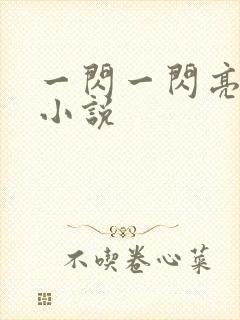 一閃一閃亮
小說
不喫卷心菜